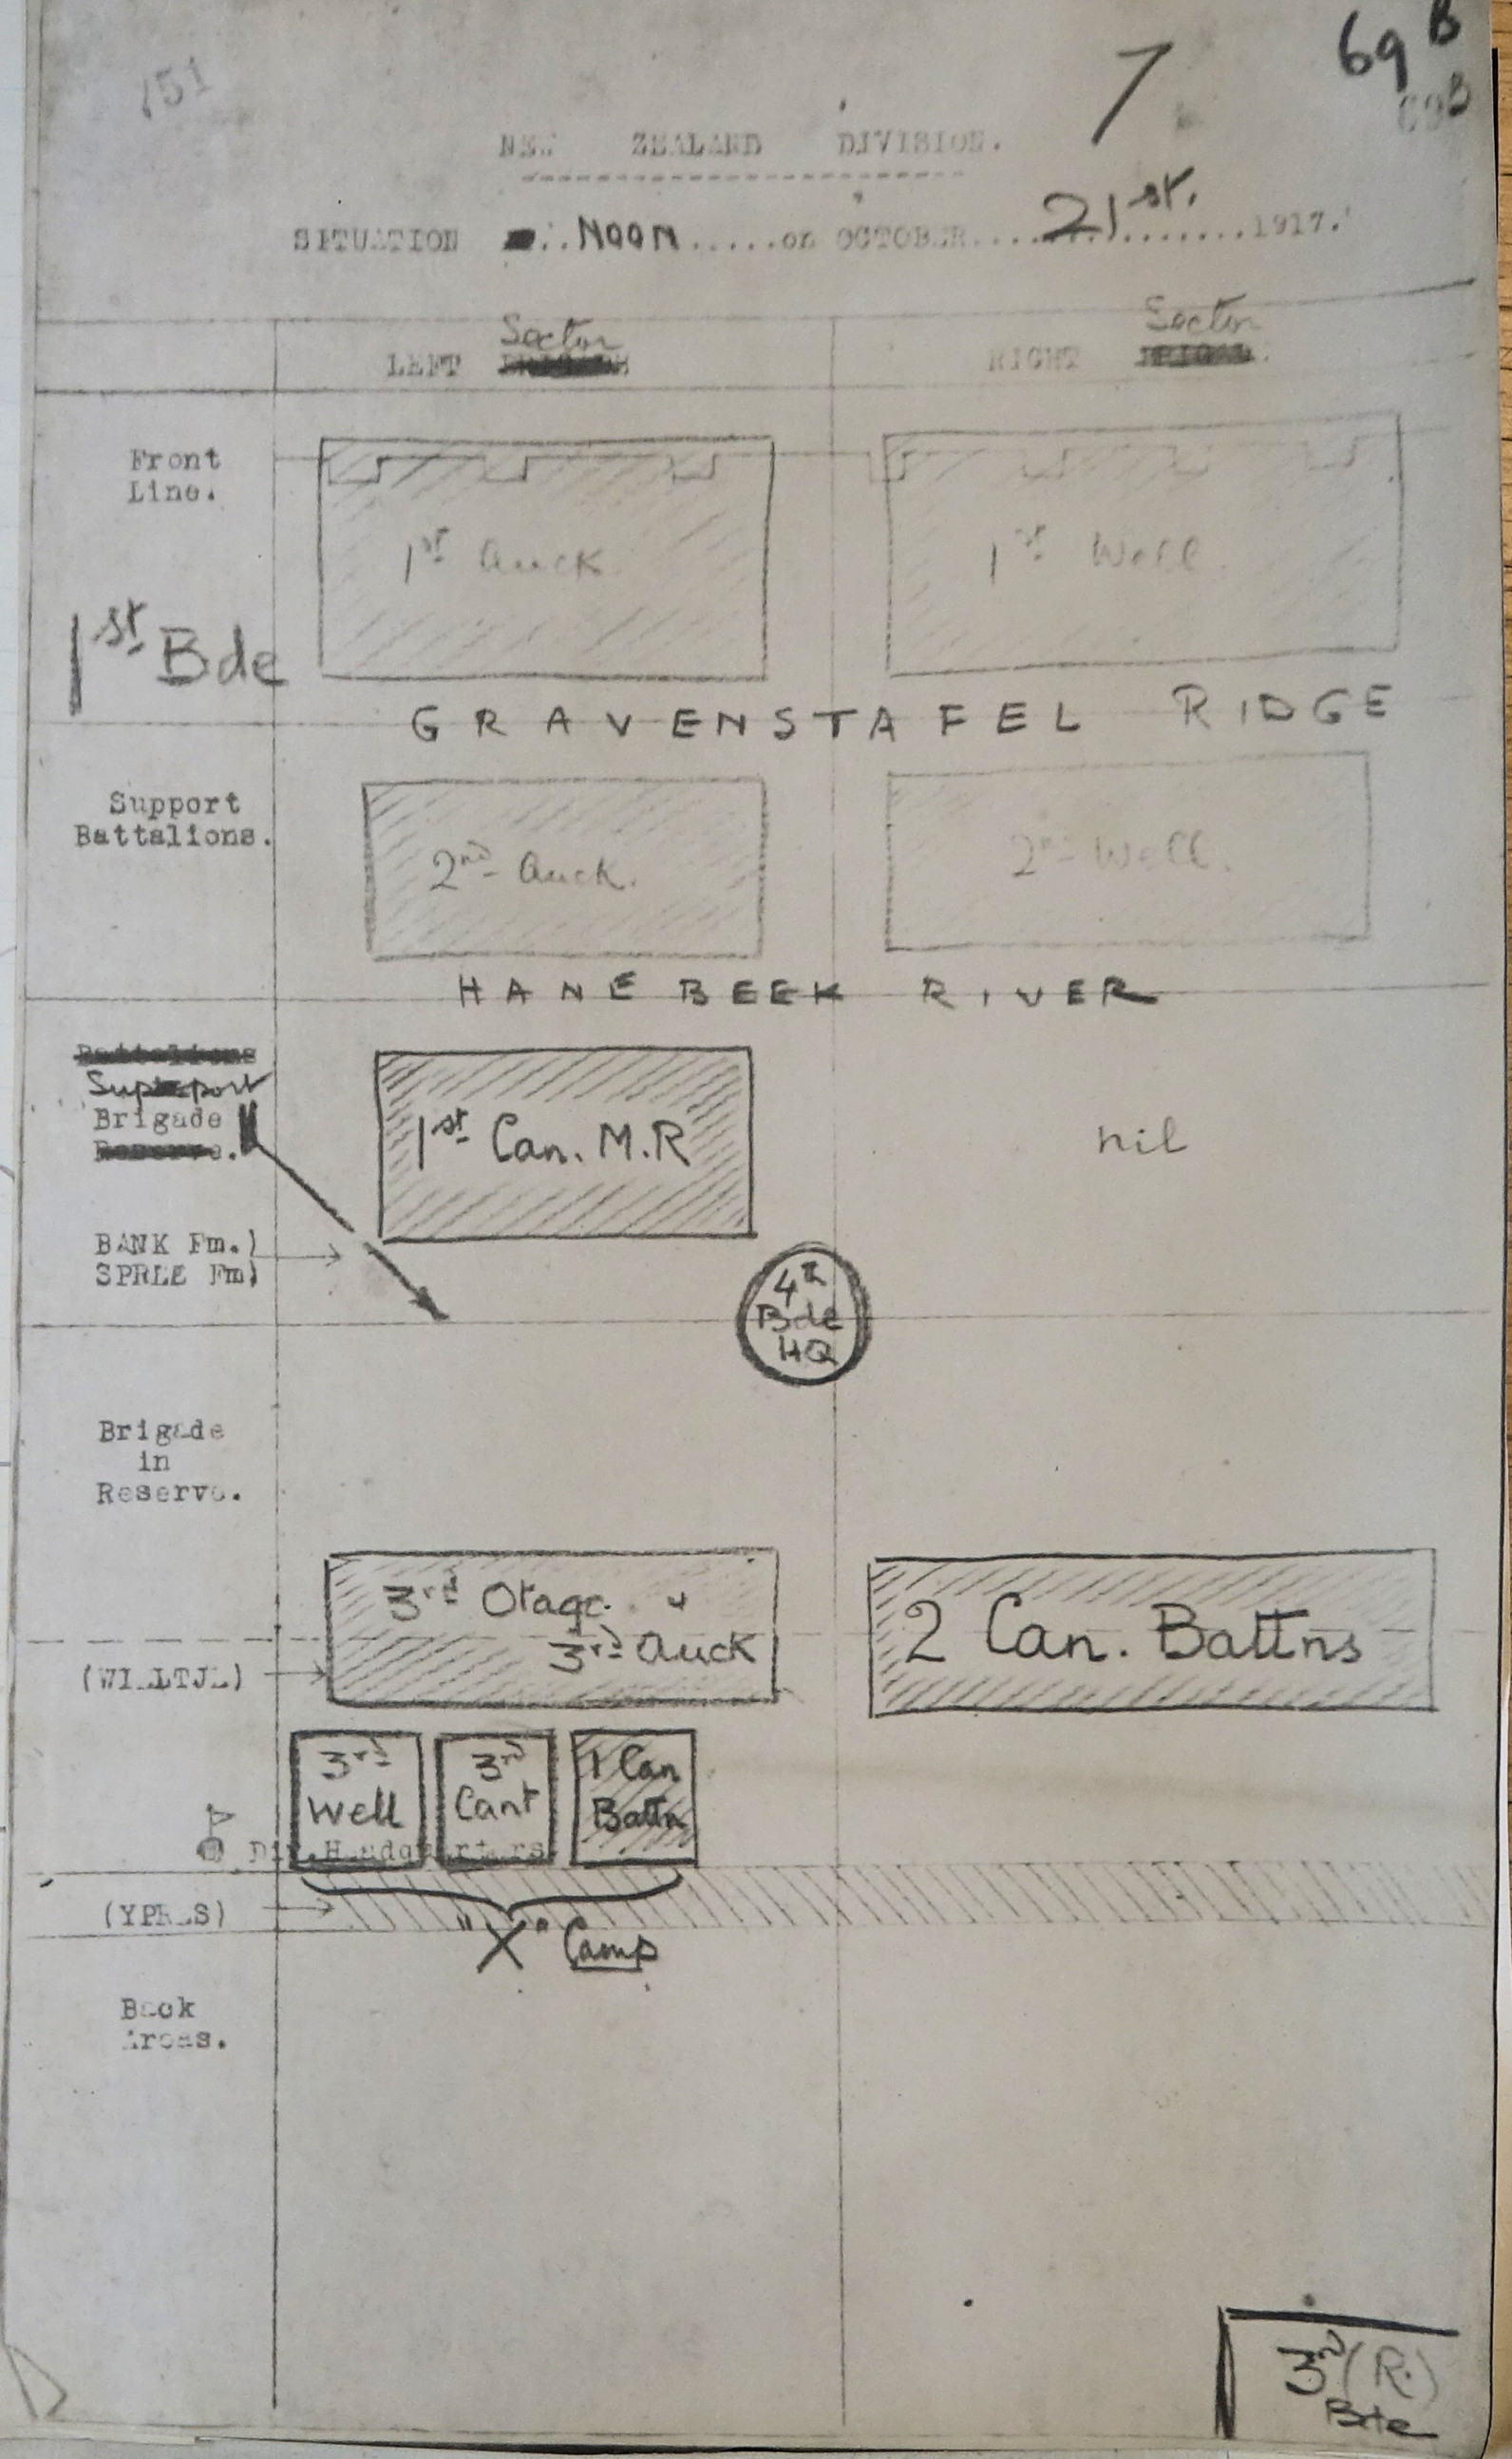 151
7
69 B
69B
NEW ZEALAND DIVISION.
SITUATION Noon on OCTOBER 21st. 1917.
LEFT Sector
RIGHT Sector
Front
Line.
1st Auck
1st Well.
1st Bde
GRAVENSTAFEL RIDGE
Support
Battalions.
2nd Auck.
2nd Well.
HANEBEEK RIVER
Battalions
Support
Brigade
Reserve.
1st Can. M.R
nil
BANK Fm.)
SPREE Fm)
4th
Bde
HQ
Brigade
in
Reserve.
3rd Otago. +
3rd Auck
2 Can. Battns
(WIELTJE)
3rd
Well
3rd
Cant
1 Can
Battn
Div. Headquarters
(YPRES)
"X" Camp
Back
Areas.
3rd (R.)
Bde